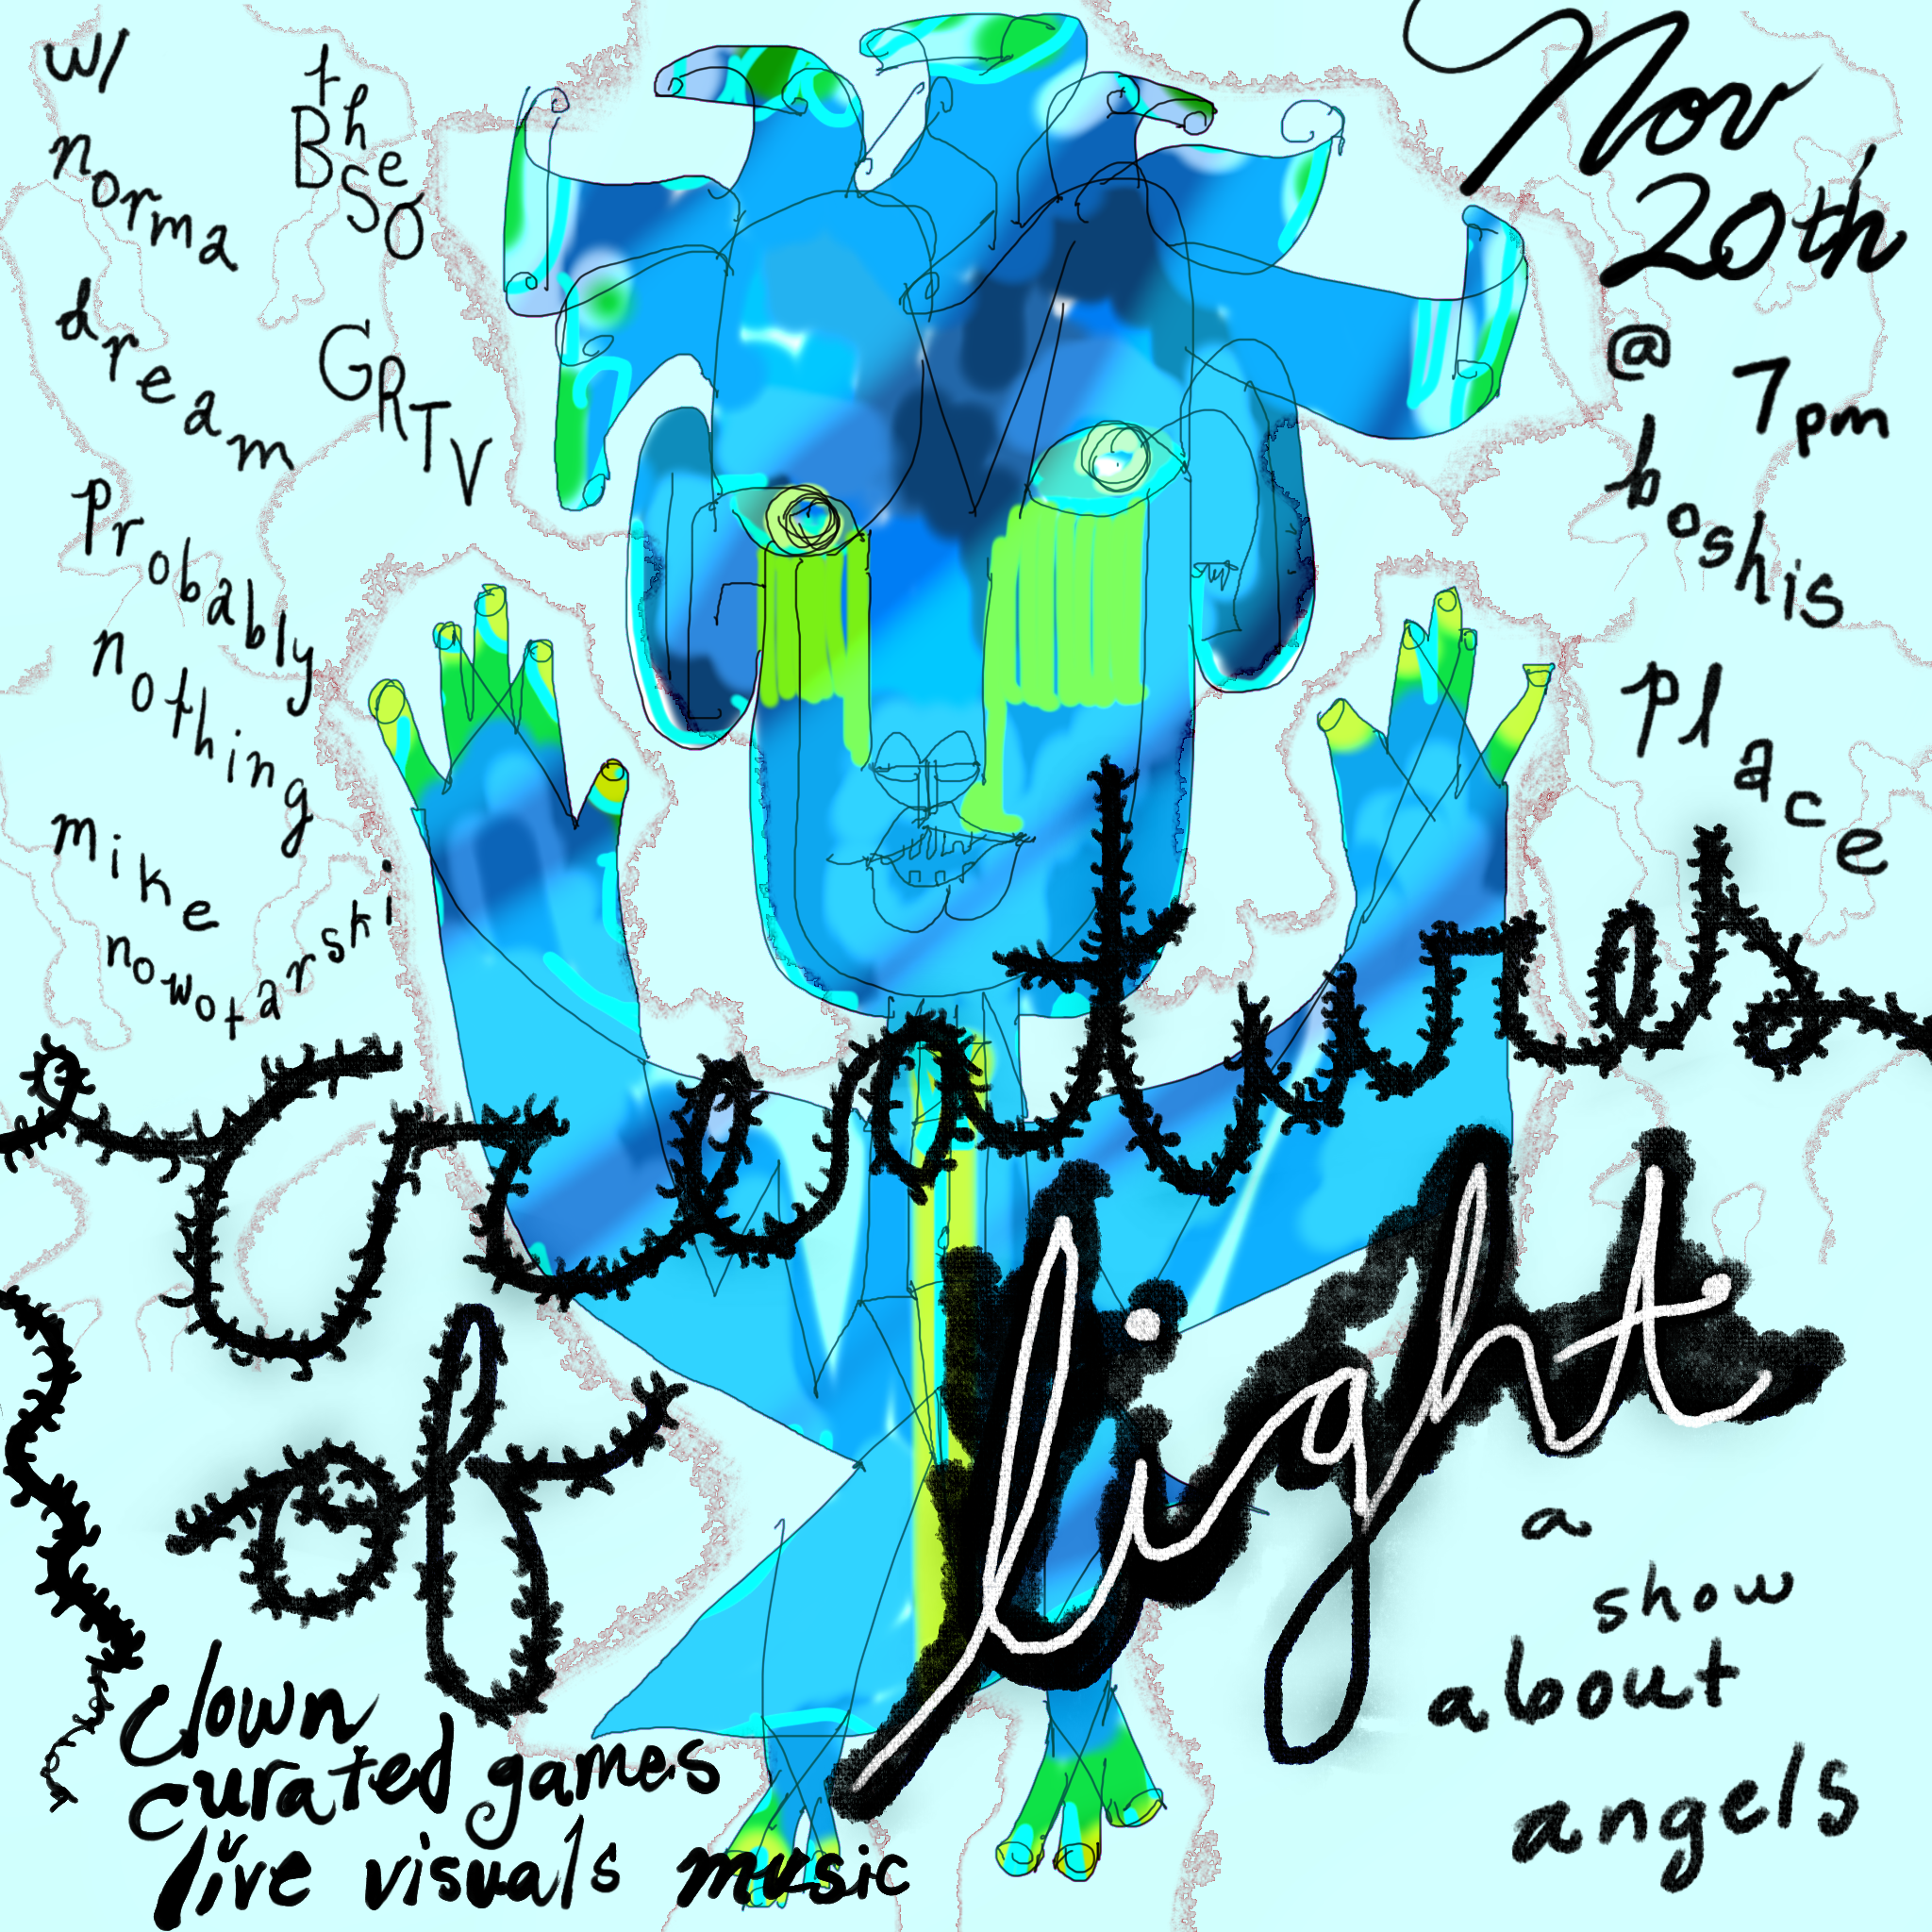 w/
norma
dream
the
BSO
GRTV
Probably
nothing
mike
nowotarski
Nov
20th
@ 7pm
boshis
place
creatures
of
light
a
show
about
angels
clown
curated games
live visuals music